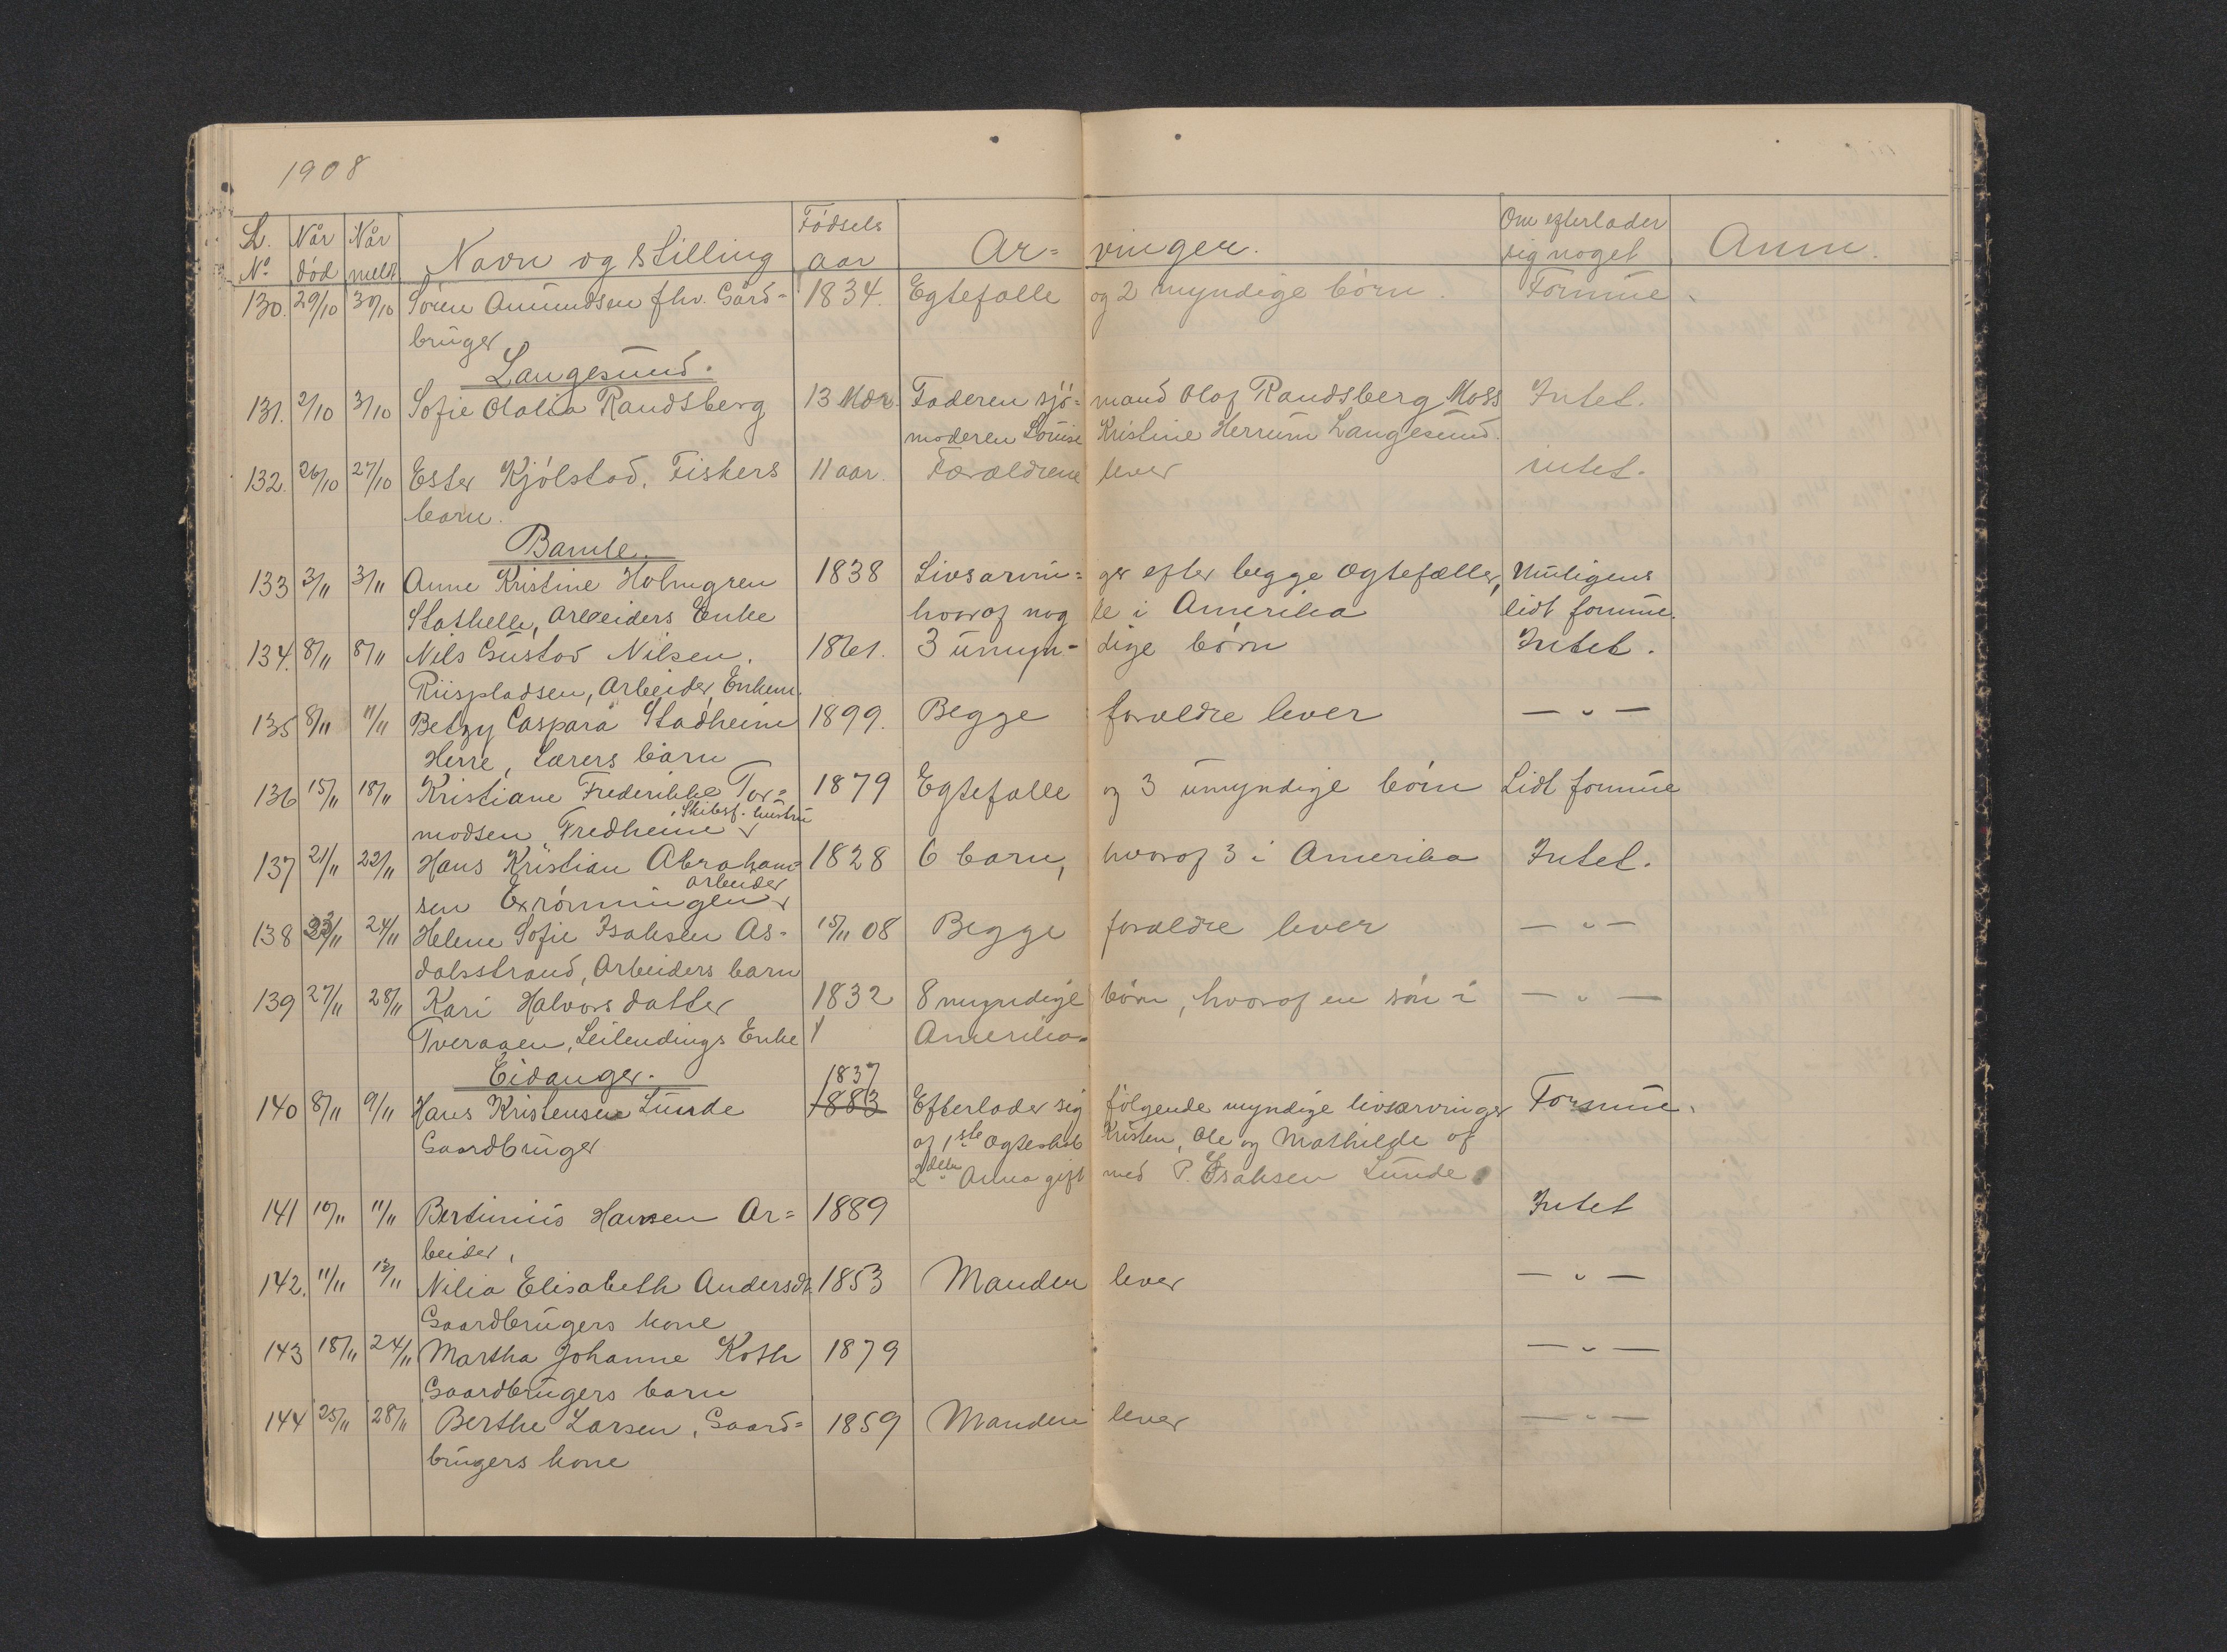 1908
L. Når Når Navn og stilling Fødsels Ar= vinger. Om efterlader Anm.
No død meldt aar sig noget
130. 29/10 30/10 Sören Amundsen fhv. Gård= 1834. Egtefalle og 2 myndige børn. Formue.
bruger
Langesund.
131. 2/10 3/10 Sofie Olalia Randsberg 13 Mdr. Faderen sjö= mand Olaf Randsberg Moss Intet.
moderen Louise Kristine Herrum Langesund.
132. 26/10 27/10 Ester Kjölstad, Fiskers 11 aar. Forældrene lever intet.
barn.
Bamle
133 3/11 3/11 Anne Kristine Holmgren 1838 Livsarvin= ger efter begge Ægtefæller, Muligens
Stathelle, Arbeiders Enke hvoraf nog le i Amerika lidt formue.
134. 8/11 8/11 Nils Gustav Nilsen. 1861. 3 umyn= dige børn Intet.
Riispladsen, Arbeider, Enkem.
135 8/11 11/11 Betzy Caspara Stadheim 1899. Begge forældre lever — " —
Herre, Lærers barn
136 15/11 18/11 Kristiane Frederikke Tor= 1879 Egtefalle og 3 umyndige børn Lidt formue
, Skibsf. hustru
modsen Fredheim
137 21/11 22/11 Hans Kristian Abraham= 1828 6 barn, hvoraf 3 i Amerika Intet.
arbeider
sen Exrønningen
138 23/11 24/11 Helene Sofie Isaksen As= 15/11 08 Begge forældre lever — " —
dalsstrand, Arbeiders barn
139 27/11 28/11 Kari Halvorsdatter 1832 8 myndige børn, hvoraf en sön i — " —
Tveraaen, Leilendings Enke Amerika.
Eidanger. 1837
140 8/11 9/11 Hans Kristensen Lunde 1883 Efterlader sig følgende myndige livsarvinger Formue.
Gaardbruger af 1ste Ægteskab Kristen, Ole og Mathilde af
2det Anna gift med P. Isaksen Lunde
141 10/11 11/11 Bertinius Hansen Ar= 1889 Intet
beider,
142. 11/11 12/11 Nilia Elisabeth Andersdt. 1853 Manden lever — " —
Gaardbrugers kone
143 18/11 24/11 Martha Johanne Roth 1879 — " —
Gaardbrugers barn
144 25/11 28/11 Berthe Larsen, Gaard= 1859 Manden lever — " —
brugers kone